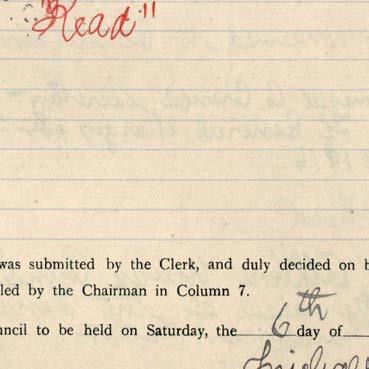 "Read"
was submitted by the Clerk, and duly decided on b
led by the Chairman in Column 7.
uncil to be held on Saturday, the 6th day of